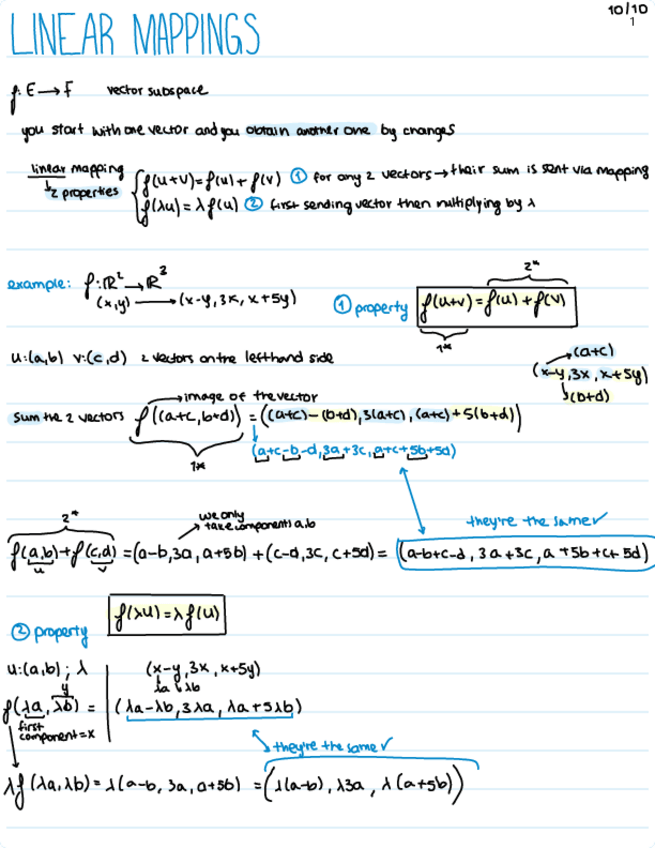 10/10
1
LINEAR MAPPINGS
f: E→F vector subspace
you start with one vector and you obtain another one by changes
linear mapping
2 properties
f(u+v)=f(u)+f(v) ① for any 2 vectors→their sum is sent via mapping
f(λu)=λf(u) ② first sending vector then multiplying by λ
example: f:ℝ²→ℝ³
(x,y)→(x-y,3x,x+5y)
① property
2*
f(u+v)=f(u)+f(v)
1*
u:(a,b) v:(c,d) 2 vectors on the lefthand side
(a+c)
(x-y,3x,x+5y)
(b+d)
image of the vector
sum the 2 vectors f((a+c,b+d))=((a+c)-(b+d),3(a+c),(a+c)+5(b+d))
1*
(a+c-b-d,3a+3c,a+c+5b+5d)
2*
we only
take components a,b
they're the same✓
f(a,b)+f(c,d)=(a-b,3a,a+5b)+(c-d,3c,c+5d)=(a-b+c-d,3a+3c,a+5b+c+5d)
u v
② property f(λu)=λf(u)
u:(a,b); λ (x-y,3x,x+5y)
y λa λb
f(λa,λb)=(λa-λb,3λa,λa+5λb)
first
component=x
they're the same✓
λf(λa,λb)=λ(a-b,3a,a+5b)=(λ(a-b),λ3a,λ(a+5b))